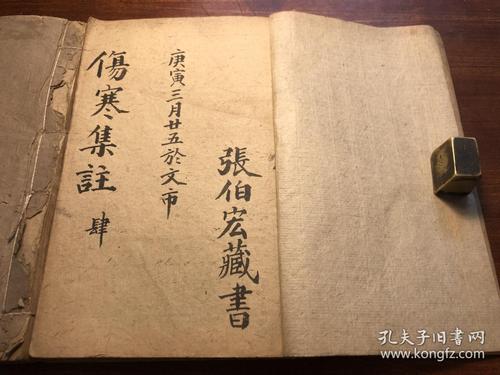 張伯宏藏書
庚寅三月廿五於文市
傷寒集註 肆
孔夫子旧書网
www.kongfz.com